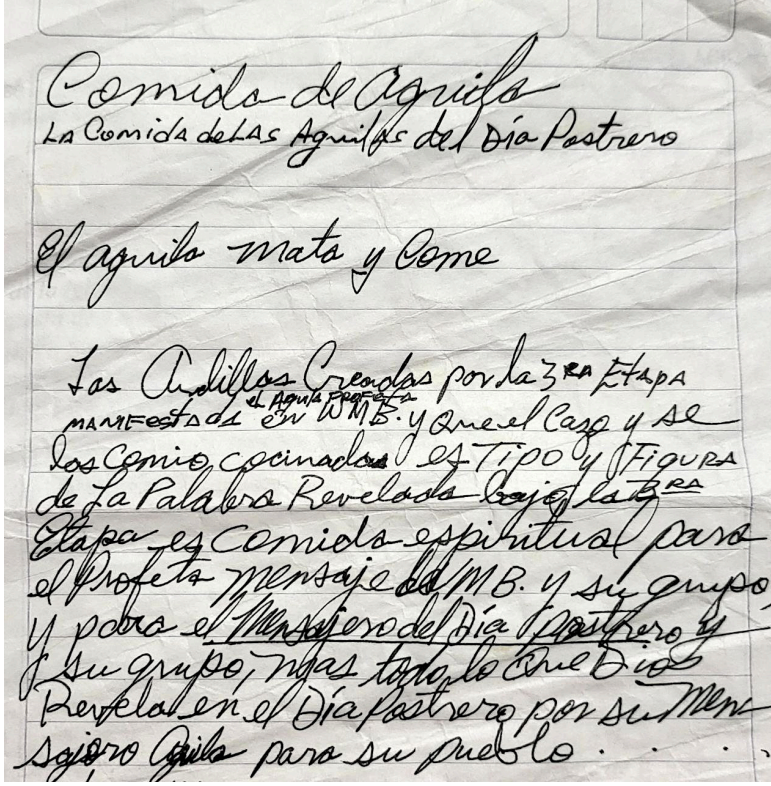 Comida de aguila
La Comida de Las Aguilas del Día Postrero
El aguila mata y Come
Las Ardillas Creadas por la 3RA Etapa
el Aguila Profeta
MANIFESTADA en WMB. y que el Cazo y se
los Comio, cocinadas es Tipo y FIGURA
de La Palabra Revelada bajo la 3RA
Etapa es comida espiritual para
el Profeta mensaje WMB. y su grupo,
y para el Mensajero del Día postrero y
su grupo, mas todo lo que Dios
Revela en el Día Postrero por su Men
sajero Aguila para su pueblo . . . .